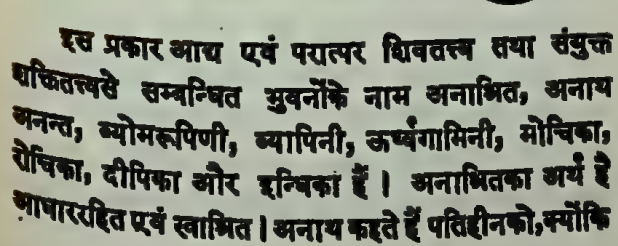 इस प्रकार आद्य एवं परात्पर शिवतत्त्व तथा संयुक्त
शक्तितत्त्वसे सम्बन्धित भुवनोंके नाम अनाश्रित, अनाथ
अनन्त, व्योमरूपिणी, व्यापिनी, ऊर्ध्वगामिनी, मोचिका,
रोचिका, दीपिका और इन्धिका हैं । अनाश्रितका अर्थ है
आधाररहित एवं स्वाश्रित । अनाथ कहते हैं पतिहीनको, क्योंकि